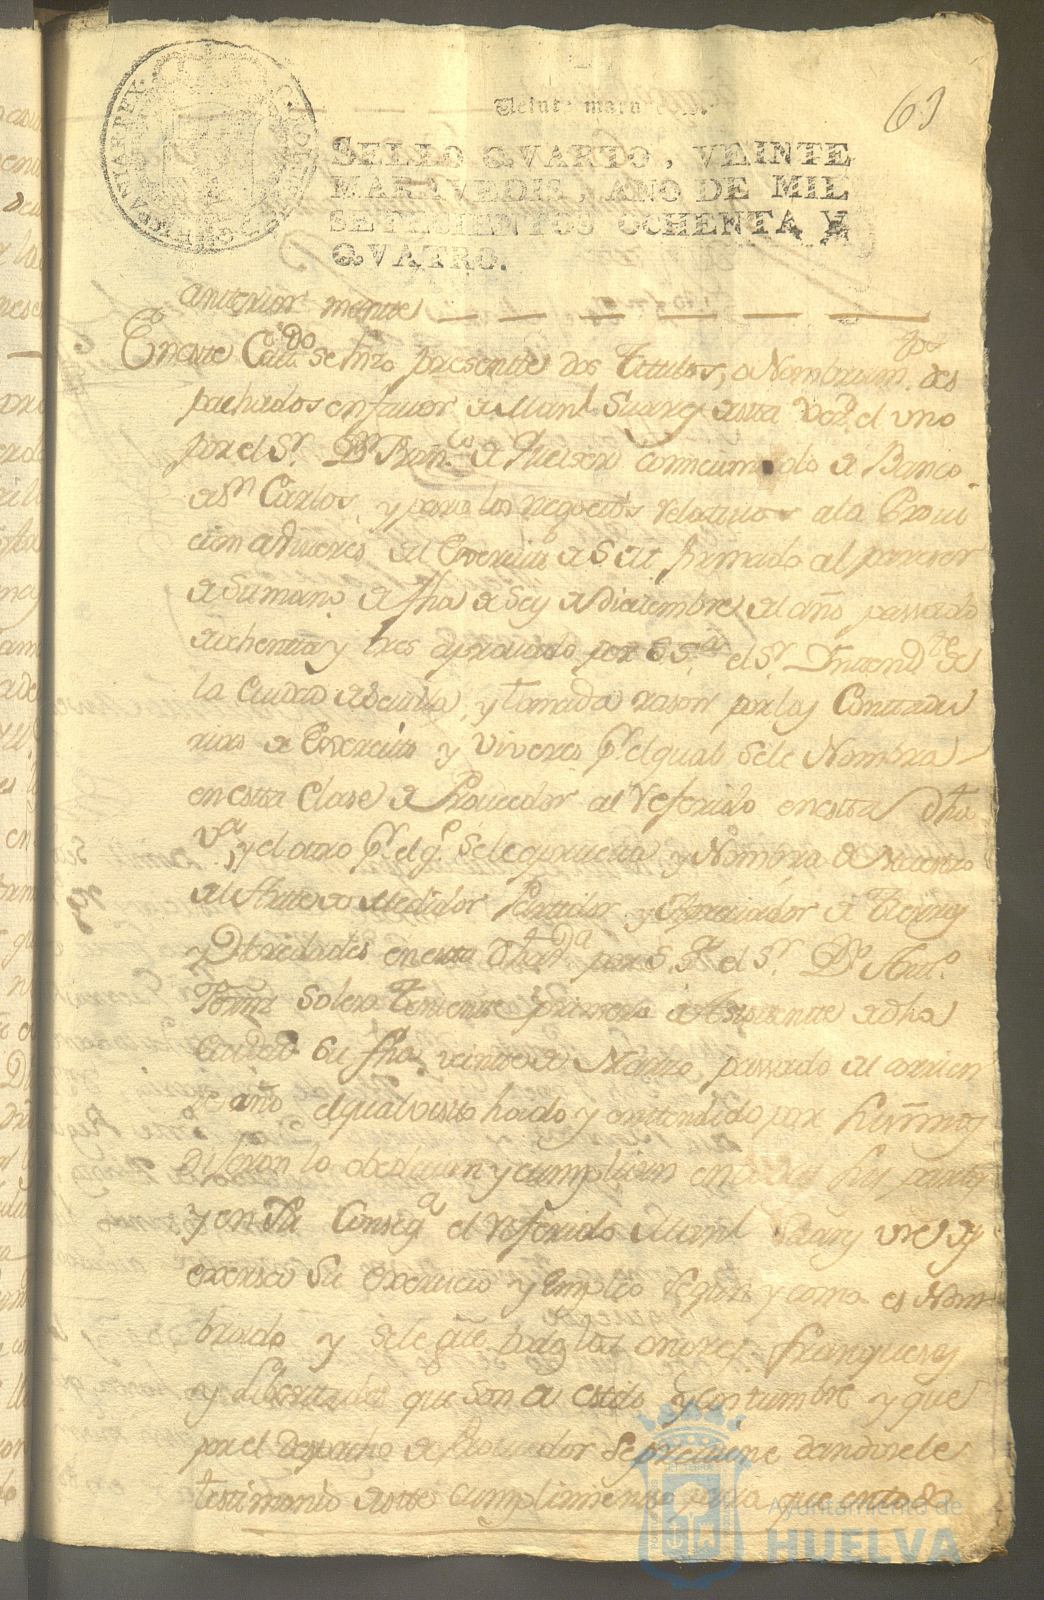 63
Veinte marav
SELLO QVARTO, VEINTE
MARAVEDIS, AÑO DE MIL
SETECIENTOS OCHENTA Y
QVATRO.
CAROLUS
HISPANIAR REX
anterior mente
En este Cauildo se hizo presente dos Titulos, o Nombram.tos des
pachados en fauor de Man.l Suarez de esta Vez.d el uno
por el S.r D.n Fran.co de comicionado de Banco
de S.n Carlos, y para los negocios relatiuos a la Proui
cion de Viueres del Exercito de S. M. firmado al parecer
de su mano, de fha de Seis de Diciembre del año passado
de ochenta y tres aprouado por S.S.a el S.r Intend.te de
la Ciudad de Seuilla, y tomada razon por las Contadu
rias de Exercito y Viveres p.r el qual se le Nombra
en esta Clase de Proueedor al referido en esta dha
V.a y el otro p.r el q.e se le aprueua y Nombra
Medidor Partidor, y Apreciador de Tierras
y Heredades en esta dha V.a por S.S.a el S.r D.n Ant.o
Solera Teniente primero de Asistente de dha
Ciudad su fha veinte de Marzo passado del corrien
te año el qual visto hoido y entendido por sus mrds
Dijeron lo obedecian y cumplian en todas sus partes
y en su Conseq.a el referido Man.l Suarez use y
exersa su exercicio y Empleo segun y como es Nom
brado y se le gde. todos los onores, franquezas
y Libertades que son de estilo, y costumbre y que
por el despacho de Proueedor se preuiene dandosele
testimonio de este cumplimiento para que en todo
Ayuntamiento de
HUELVA